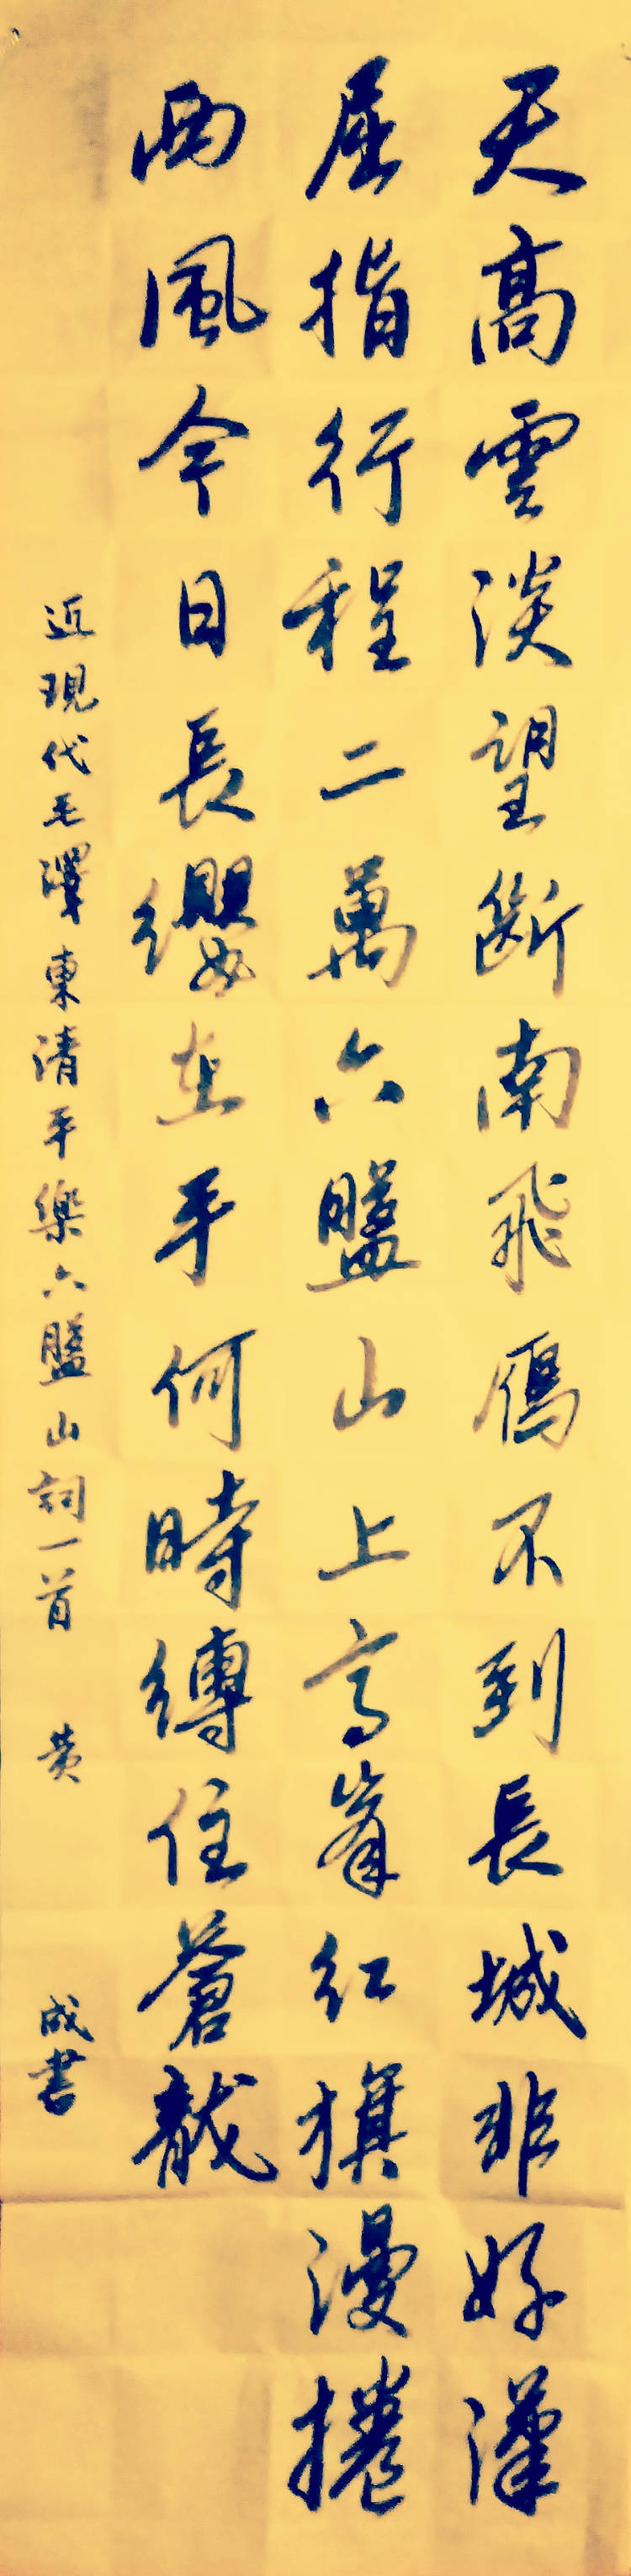 天高雲淡望斷南飛鴈不到長城非好漢
屈指行程二萬六盤山上高峯紅旗漫捲
西風今日長纓在手何時縛住蒼龍
近現代毛澤東清平樂六盤山詞一首 黄 成書